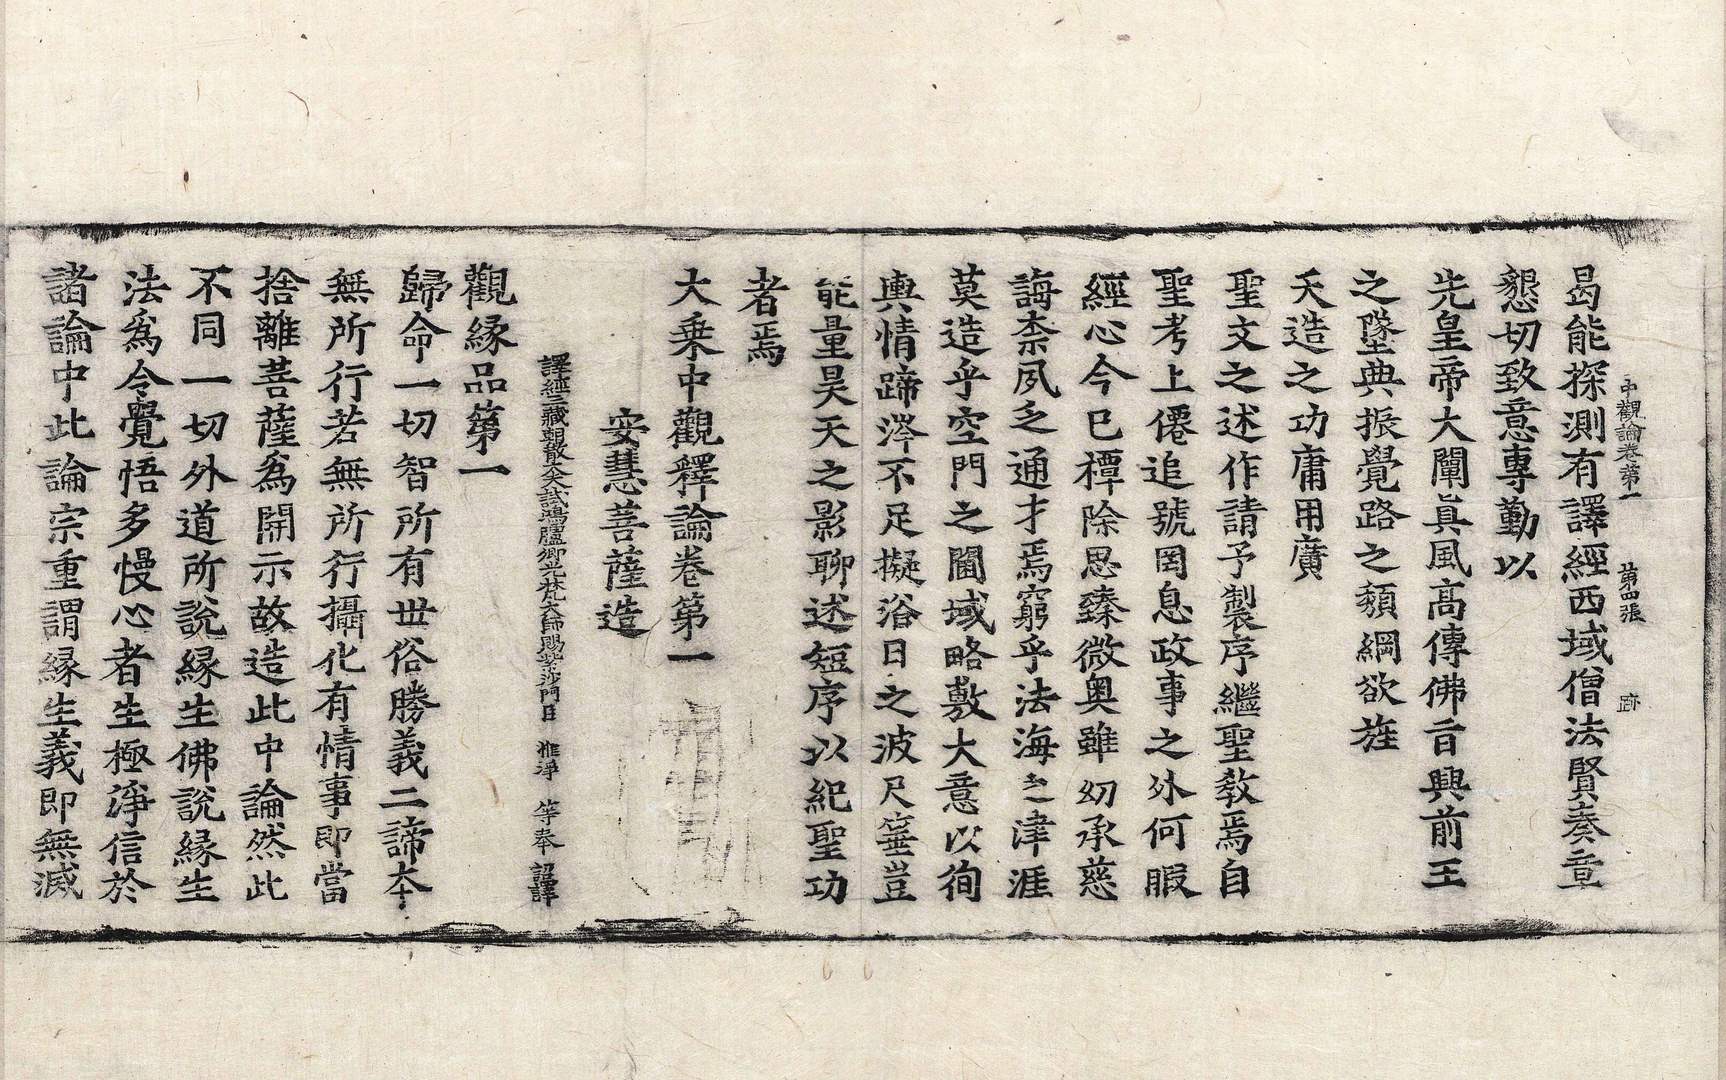 中觀論卷第一 第四張 跡
曷能探測有譯經西域僧法賢奏章
懇切致意專勤以
先皇帝大闡真風高傳佛旨興前王
之墜典振覺路之頹綱欲旌
天造之功庸用廣
聖文之述作請予製序繼聖教焉自
聖考上僊追號罔息政事之外何暇
經心今已禫除思臻微奥雖幼承慈
誨柰夙乏通才焉窮乎法海之津涯
莫造乎空門之閫域略敷大意以徇
輿情蹄涔不足擬浴日之波尺箠豈
能量昊天之影聊述短序以紀聖功
者焉
大乗中觀釋論卷第一
安慧菩薩造
譯經三藏朝散大夫試鴻臚卿光梵大師賜紫沙門臣 惟淨 等奉 詔譯
觀緣品第一
歸命一切智所有世俗勝義二諦本
無所行若無所行攝化有情事即當
捨離菩薩爲開示故造此中論然此
不同一切外道所説緣生佛説緣生
法爲令覺悟多慢心者生極淨信於
諸論中此論宗重謂緣生義即無滅